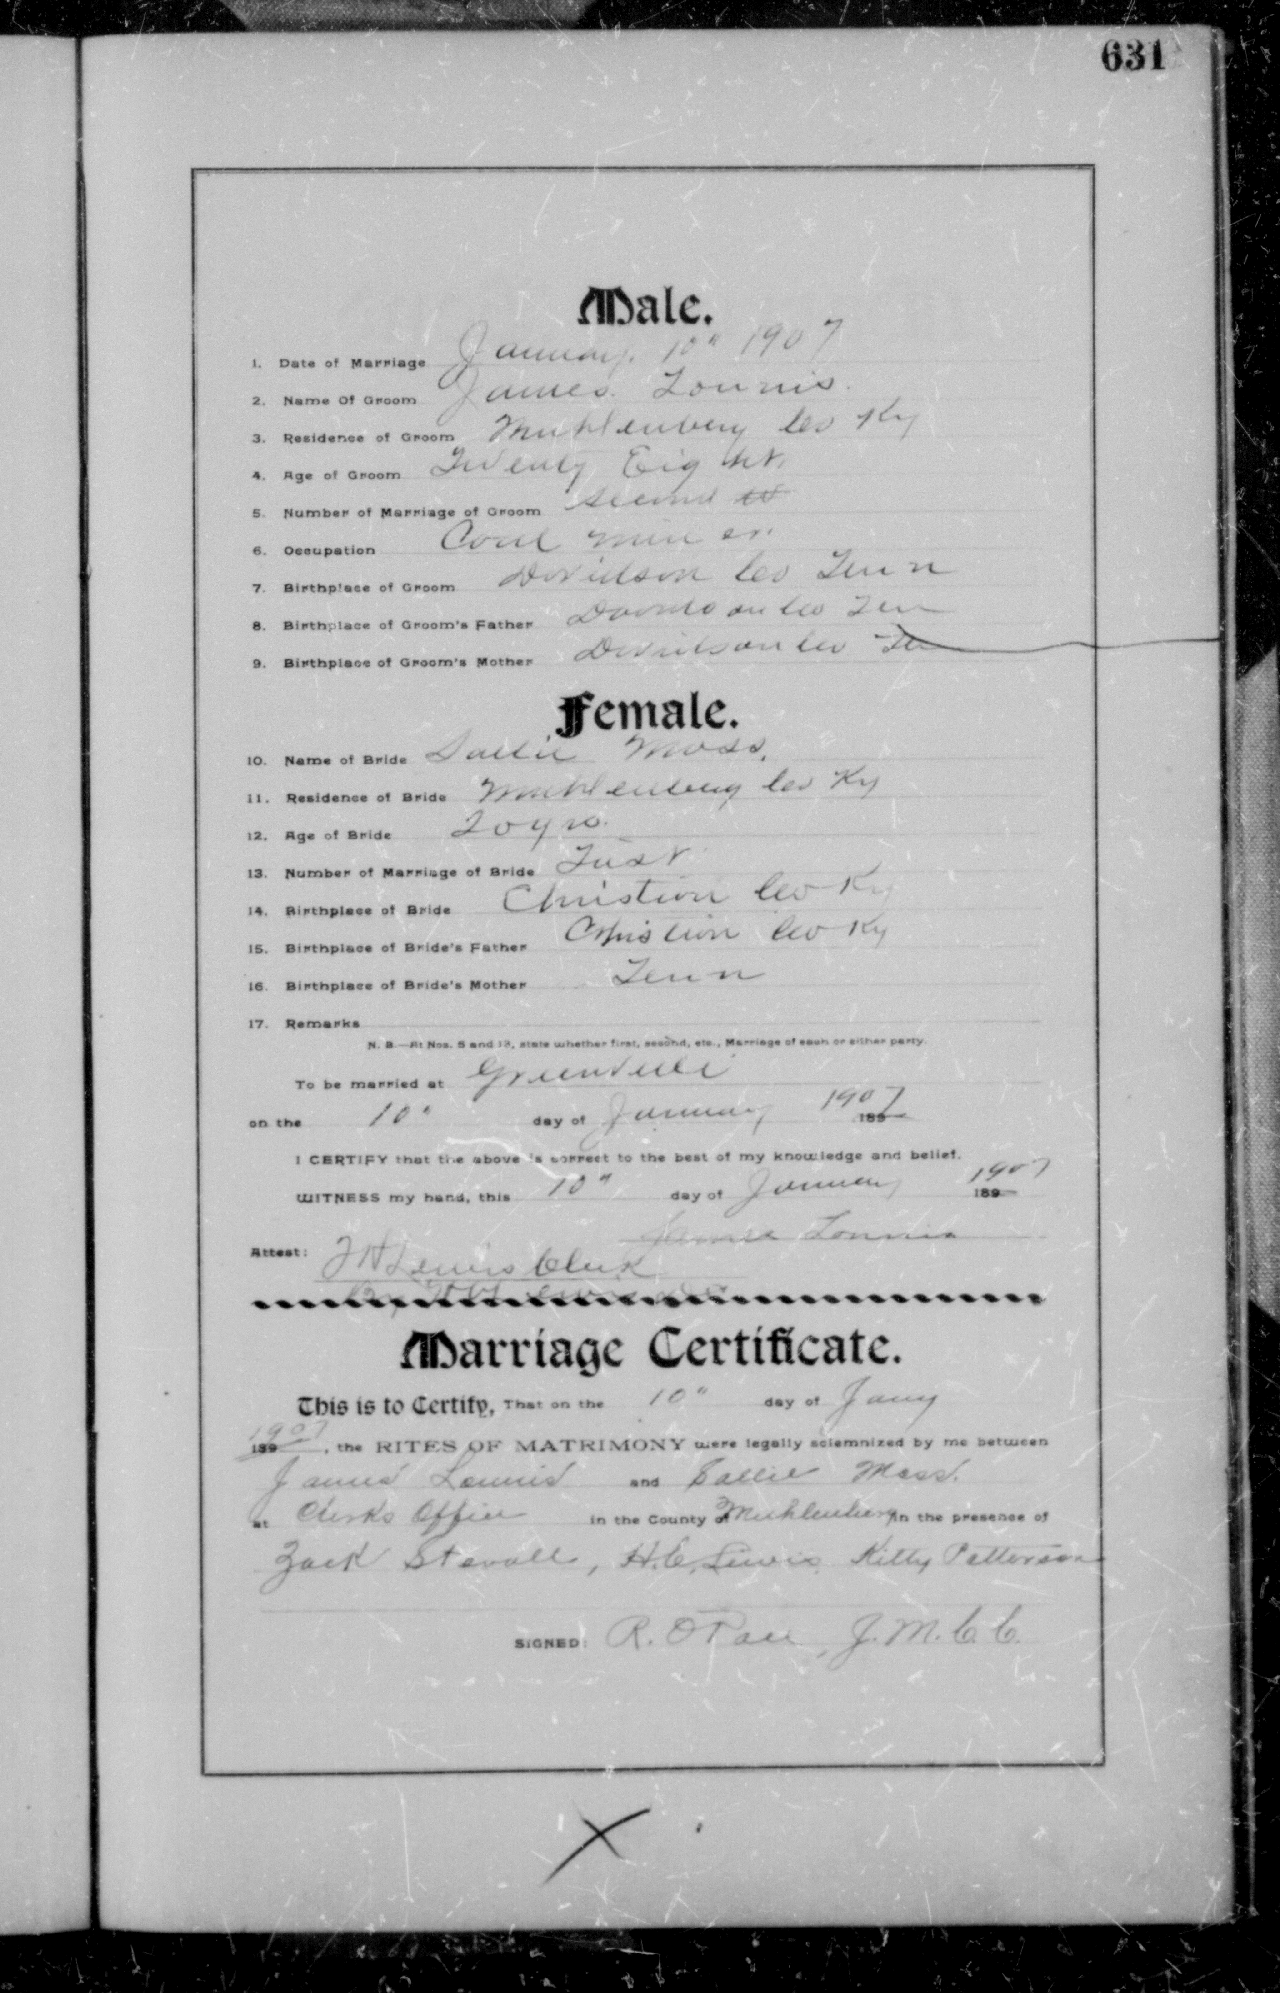 631
Male.
1. Date of Marriage January. 10" 1907
2. Name Of Groom James. Lonnis.
3. Residence of Groom Muhlenberg Co Ky
4. Age of Groom Twenty Eight
5. Number of Marriage of Groom second
6. Occupation Coal miner
7. Birthplace of Groom Davidson Co Tenn
8. Birthplace of Groom's Father Davidson Co Ten
9. Birthplace of Groom's Mother Davidson Co Ten
Female.
10. Name of Bride Sallie Moss.
11. Residence of Bride Muhlenberg Co Ky
12. Age of Bride 20 yrs.
13. Number of Marriage of Bride First
14. Birthplace of Bride Christian Co Ky
15. Birthplace of Bride's Father Christian Co Ky
16. Birthplace of Bride's Mother Tenn
17. Remarks
N. B.—At Nos. 5 and 13, state whether first, second, etc., Marriage of each or either party.
To be married at Greenville
on the 10" day of January 1907 189
I CERTIFY that the above is correct to the best of my knowledge and belief.
WITNESS my hand, this 10" day of January 1907 189
James Lonnis
Attest: Lewis Clerk
By
Marriage Certificate.
This is to Certify, That on the 10" day of Jany
1907 189 , the RITES OF MATRIMONY were legally solemnized by me between
James Lonnis and Sallie Moss.
at Clerks Office in the County of Muhlenberg in the presence of
Zack Stovall, H.C. Lewis, Kitty Patterson
SIGNED: R. O , J.M.C.C.
X